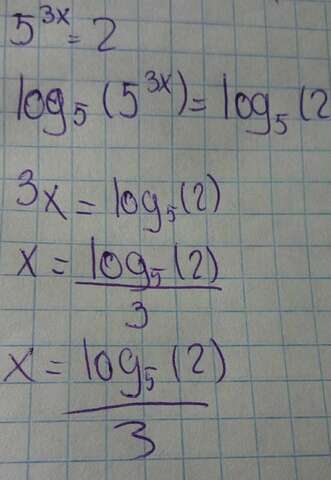 5^{3x} = 2
log₅(5^{3x}) = log₅(2
3x = log₅(2)
x = log₅(2)
3
x = log₅(2)
3